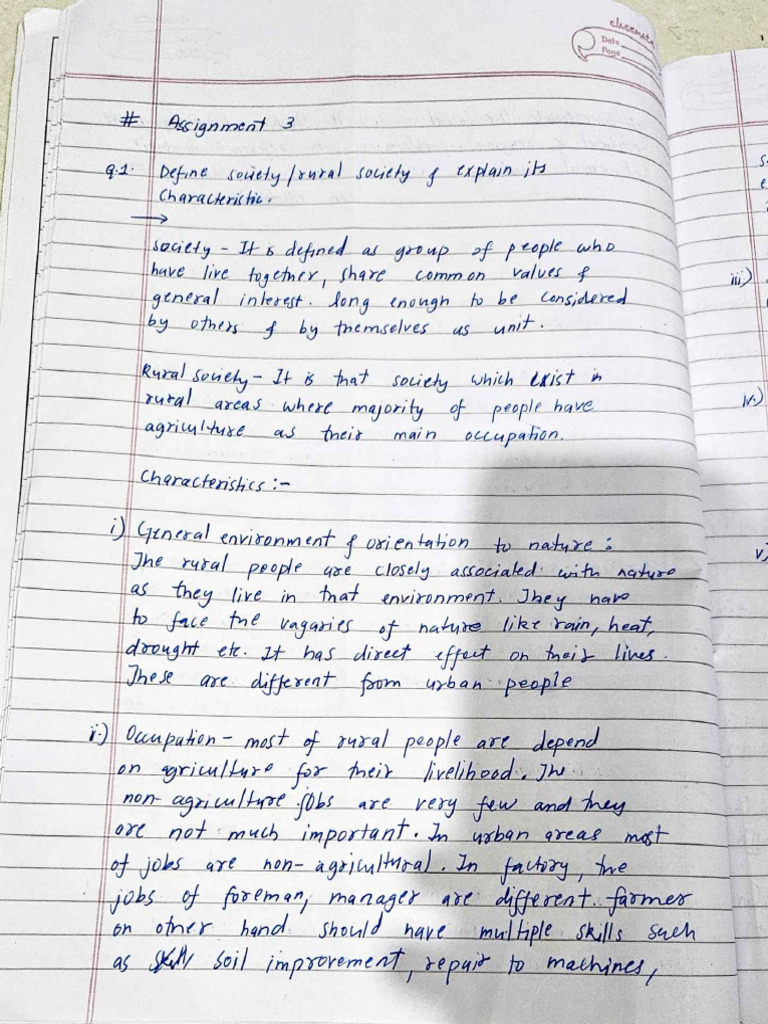 classmate
Date
Page
# Assignment 3
Q.1. Define society/rural society & explain its
characteristic.
→
Society - It is defined as group of people who
have live together, share common values &
general interest. long enough to be considered
by others & by themselves as unit.
Rural society - It is that society which exist in
rural areas where majority of people have
agriculture as their main occupation.
Characteristics :-
i) General environment & orientation to nature :
The rural people are closely associated with nature
as they live in that environment. They have
to face the vagaries of nature like rain, heat,
drought etc. It has direct effect on their lives.
These are different from urban people
ii.) Occupation - most of rural people are depend
on agriculture for their livelihood. The
non-agriculture jobs are very few and they
are not much important. In urban areas most
of jobs are non-agricultural. In factory, the
jobs of foreman, manager are different. farmer
on other hand should have multiple skills such
as soil improvement, repair to machines,
iii)
iv.)
v)